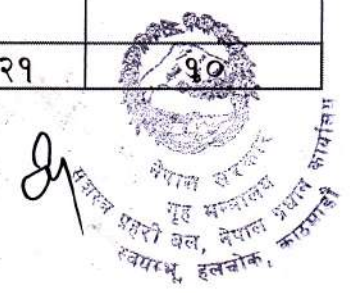 २१ १०
नेपाल सरकार
गृह मन्त्रालय
सशस्त्र प्रहरी बल, नेपाल प्रधान कार्यालय
स्वयम्भू, हलचोक, काठमाडौं